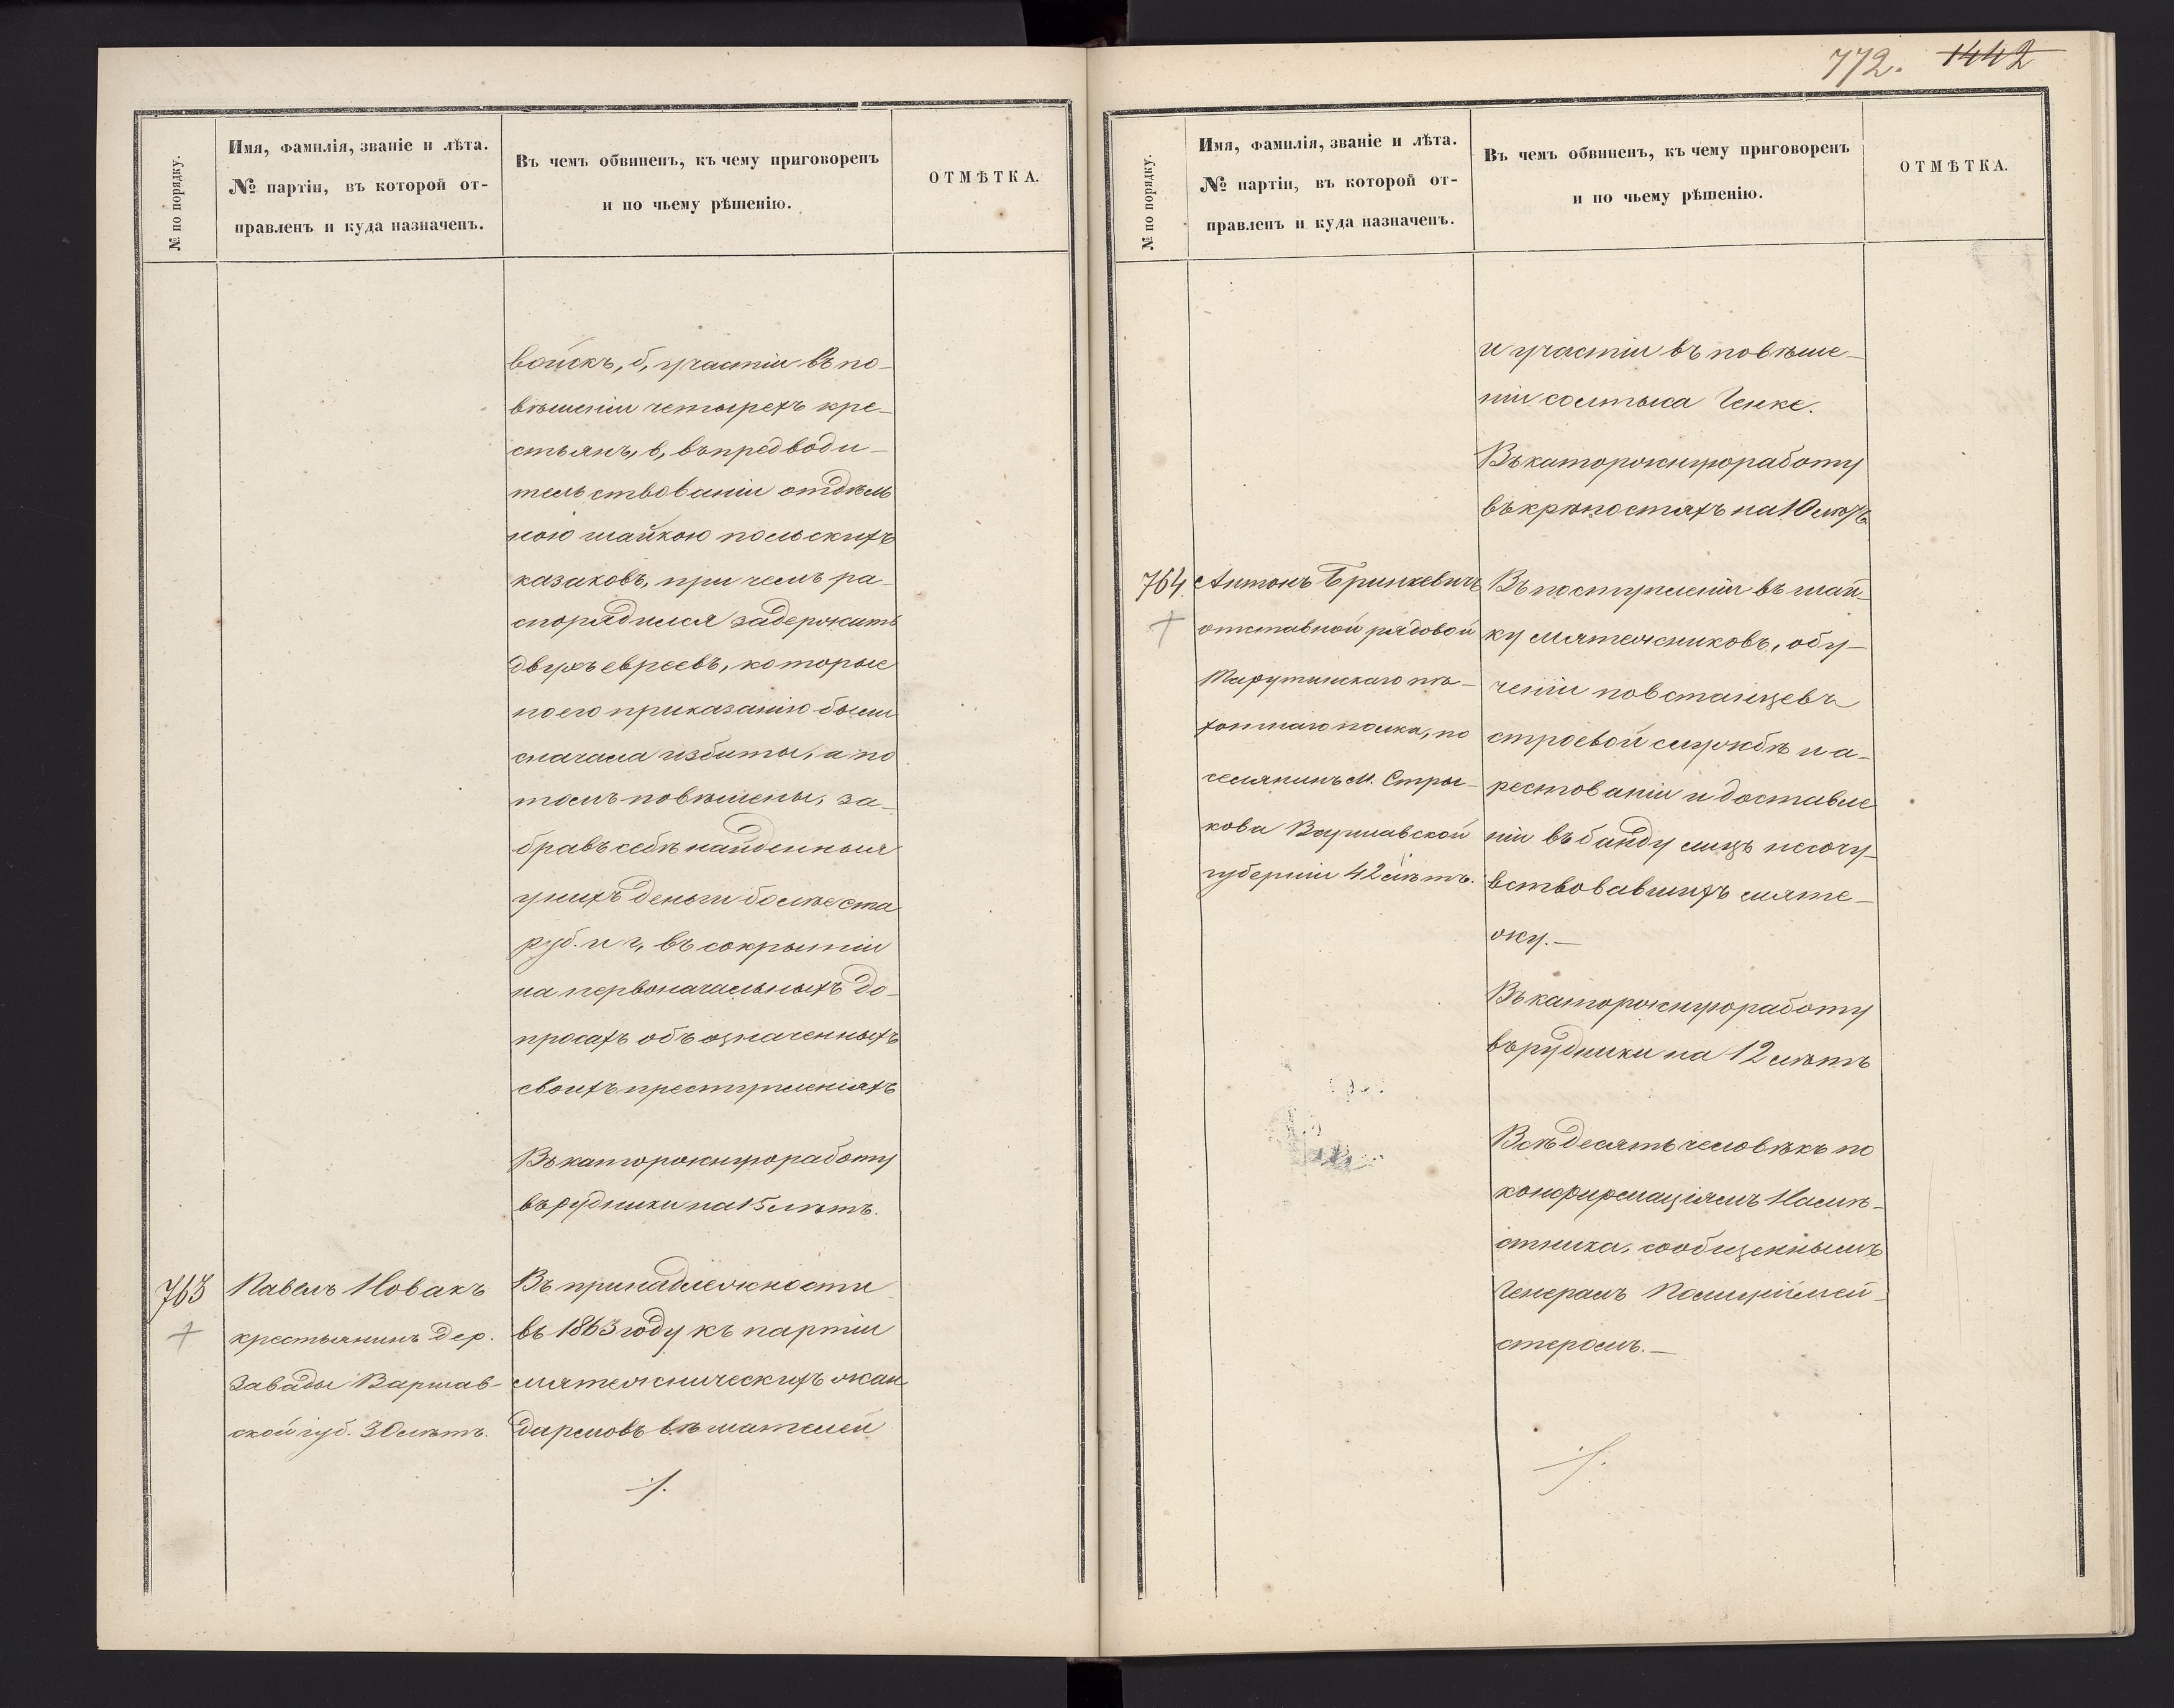 772. 1442
№ по порядку.
Имя, фамилія, званіе и лѣта.
№ партіи, въ которой от-
правленъ и куда назначенъ.
Въ чемъ обвиненъ, къ чему приговоренъ
и по чьему рѣшенію.
ОТМѢТКА.
войскъ, б, участіи въ по-
вѣшеніи четырехъ кре-
стьянъ, в, въ предводи-
тельствованіи отдѣль
ною шайкою польскихъ
казаковъ, при чемъ ра-
спорядился задержать
двухъ евреевъ, которые
по его приказанію были
сначала избиты, а по
томъ повѣшены, за-
бравъ себѣ найденныя
у нихъ деньги болѣе ста
руб. и г, въ сокрытіи
на первоначальныхъ до-
просахъ объ означенныхъ
своихъ преступленіяхъ
Въ каторжную работу
въ рудники на 15 лѣтъ.
763
Павелъ Новакъ
крестьянинъ дер.
Завады Варшав-
ской губ. 30 лѣтъ.
Въ принадлежности
въ 1863 году къ партіи
мятежническихъ жан
дармовъ вѣшателей
./.
№ по порядку.
Имя, фамилія, званіе и лѣта.
№ партіи, въ которой от-
правленъ и куда назначенъ.
Въ чемъ обвиненъ, къ чему приговоренъ
и по чьему рѣшенію.
ОТМѢТКА.
и участіи въ повѣше-
ніи солтыса Генке.
Въ каторжную работу
въ крѣпостяхъ на 10 лѣтъ
764.
Антонъ Бринкевичъ
отставной рядовой
Тарутинскаго пѣ-
хотнаго полка, по
селянинъ м. Стры-
кова Варшавской
губерніи 42 лѣтъ.
Въ поступленіи въ шай-
ку мятежниковъ, обу-
ченіи повстанцевъ
строевой службѣ и а-
рестованіи и доставле
ніи въ банду лицъ несочу-
вствовавшихъ мяте-
жу.—
Въ каторжную работу
въ рудники на 12 лѣтъ
Всѣ десять человѣкъ по
конфирмаціямъ Намѣ-
стника, сообщеннымъ
Генералъ Полиціймей-
стеромъ.—
./.